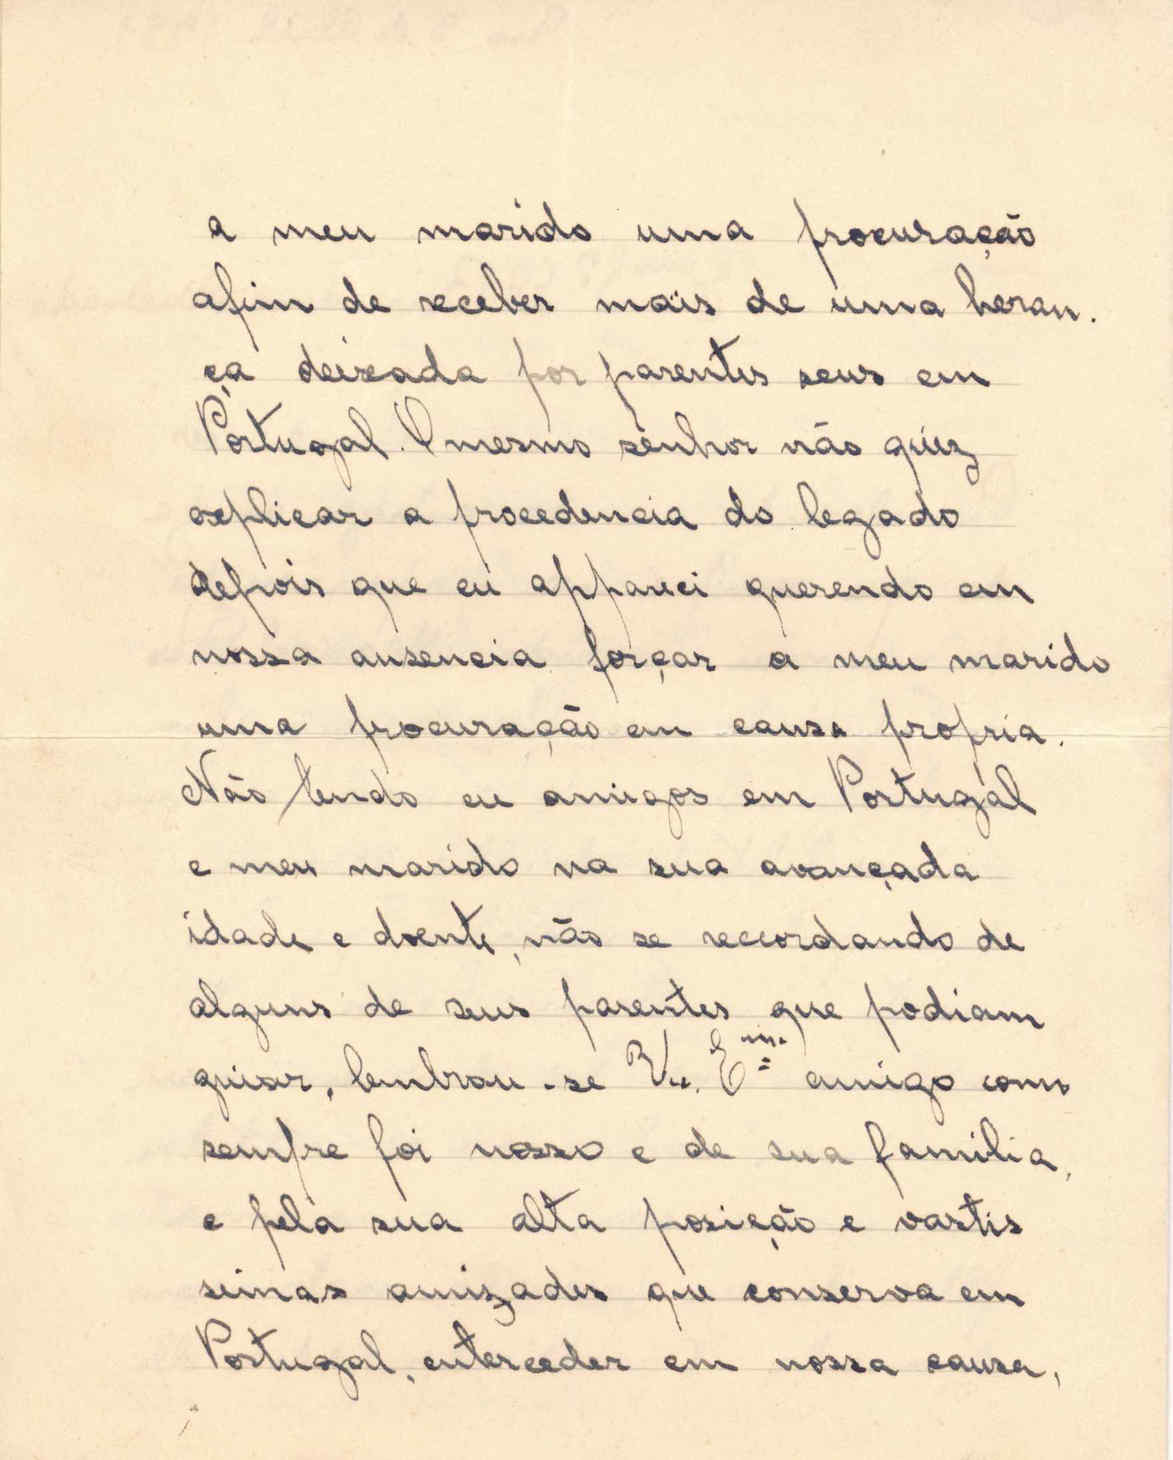 a meu marido uma procuração
afim de receber mais de uma heran-
ça deixada por parentes seus em
Portugal. O mesmo senhor não quiz
explicar a procedencia do legado
depois que eu appareci querendo em
nossa ausencia forçar a meu marido
uma procuração em causa propria.
Não tendo eu amigos em Portugal
e meu marido na sua avançada
idade e doente, não se reccordando de
alguns de seus parentes que podiam
guiar, lembrou-se V. Ex.ma amigo como
sempre foi nosso e de sua familia,
e pela sua alta posição e vastis
simas amizades que conserva em
Portugal, enterceder em nossa causa,